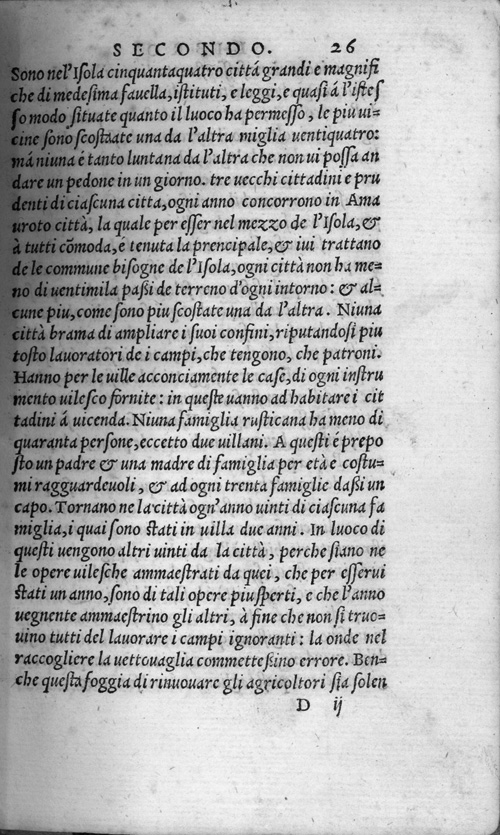 SECONDO. 26
Sono nel'Isola cinquantaquatro cittá grandi e magnifi
che di medesima fauella, istituti, e leggi, e quasi á l'istes
so modo situate quanto il luoco ha permesso, le piu ui=
cine sono scostaate una da l'altra miglia uentiquatro:
má niuna é tanto luntana da l'altra che non ui possa an
dare un pedone in un giorno. tre uecchi cittadini e pru
denti di ciascuna citta, ogni anno concorrono in Ama
uroto città, la quale per esser nel mezzo de l'Isola, &
à tutti cõmoda, é tenuta la prencipale, & iui trattano
de le commune bisogne de l'Isola, ogni città non ha me=
no di uentimila passi de terreno d'ogni intorno: & al=
cune piu, come sono piu scostate una da l'altra. Niuna
città brama di ampliare i suoi confini, riputandosi piu
tosto lauoratori de i campi, che tengono, che patroni.
Hanno per le uille acconciamente le case, di ogni instru
mento uilesco fornite: in queste uanno ad habitare i cit
tadini á uicenda. Niuna famiglia rusticana ha meno di
quaranta persone, eccetto due uillani. A questi é prepo
sto un padre & una madre di famiglia per età e costu=
mi ragguardeuoli, & ad ogni trenta famiglie dassi un
capo. Tornano ne la città ogn'anno uinti di ciascuna fa
miglia, i quai sono stati in uilla due anni. In luoco di
questi uengono altri uinti da la città, perche siano ne
le opere uilesche ammaestrati da quei, che per esserui
stati un anno, sono di tali opere piu sperti, e che l'anno
uegnente ammaestrino gli altri, à fine che non si truo=
uino tutti del lauorare i campi ignoranti: la onde nel
raccogliere la uettouaglia commettessino errore. Ben=
che questa foggia di rinuouare gli agricoltori sia solen
D ij